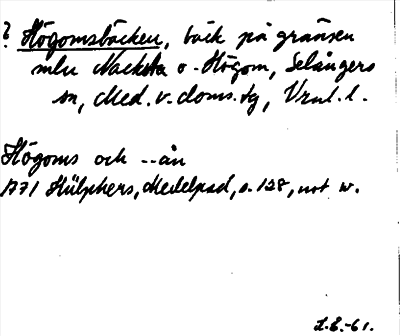 ? Högomsbäcken, bäck på gränsen
mln Nacksta o. Högom, Selångers
sn, Med. v. doms. tg, Vrnl. l.
Högoms och --ån
1771 Hülphers, Medelpad, s. 128, not w.
L.E.-61.